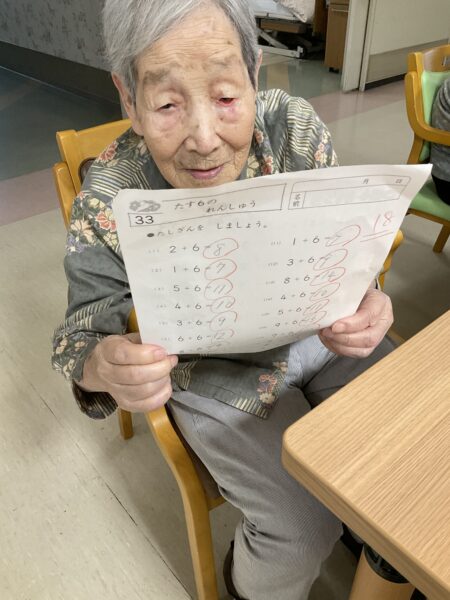 33
たす6の れんしゅう
月 日
名前
18
●たしざんを しましょう。
2+6=8
1+6=7
5+6=11
4+6=10
3+6=9
6+6=12
1+6=7
3+6=9
8+6=14
4+6=10
5+6=
9+6=